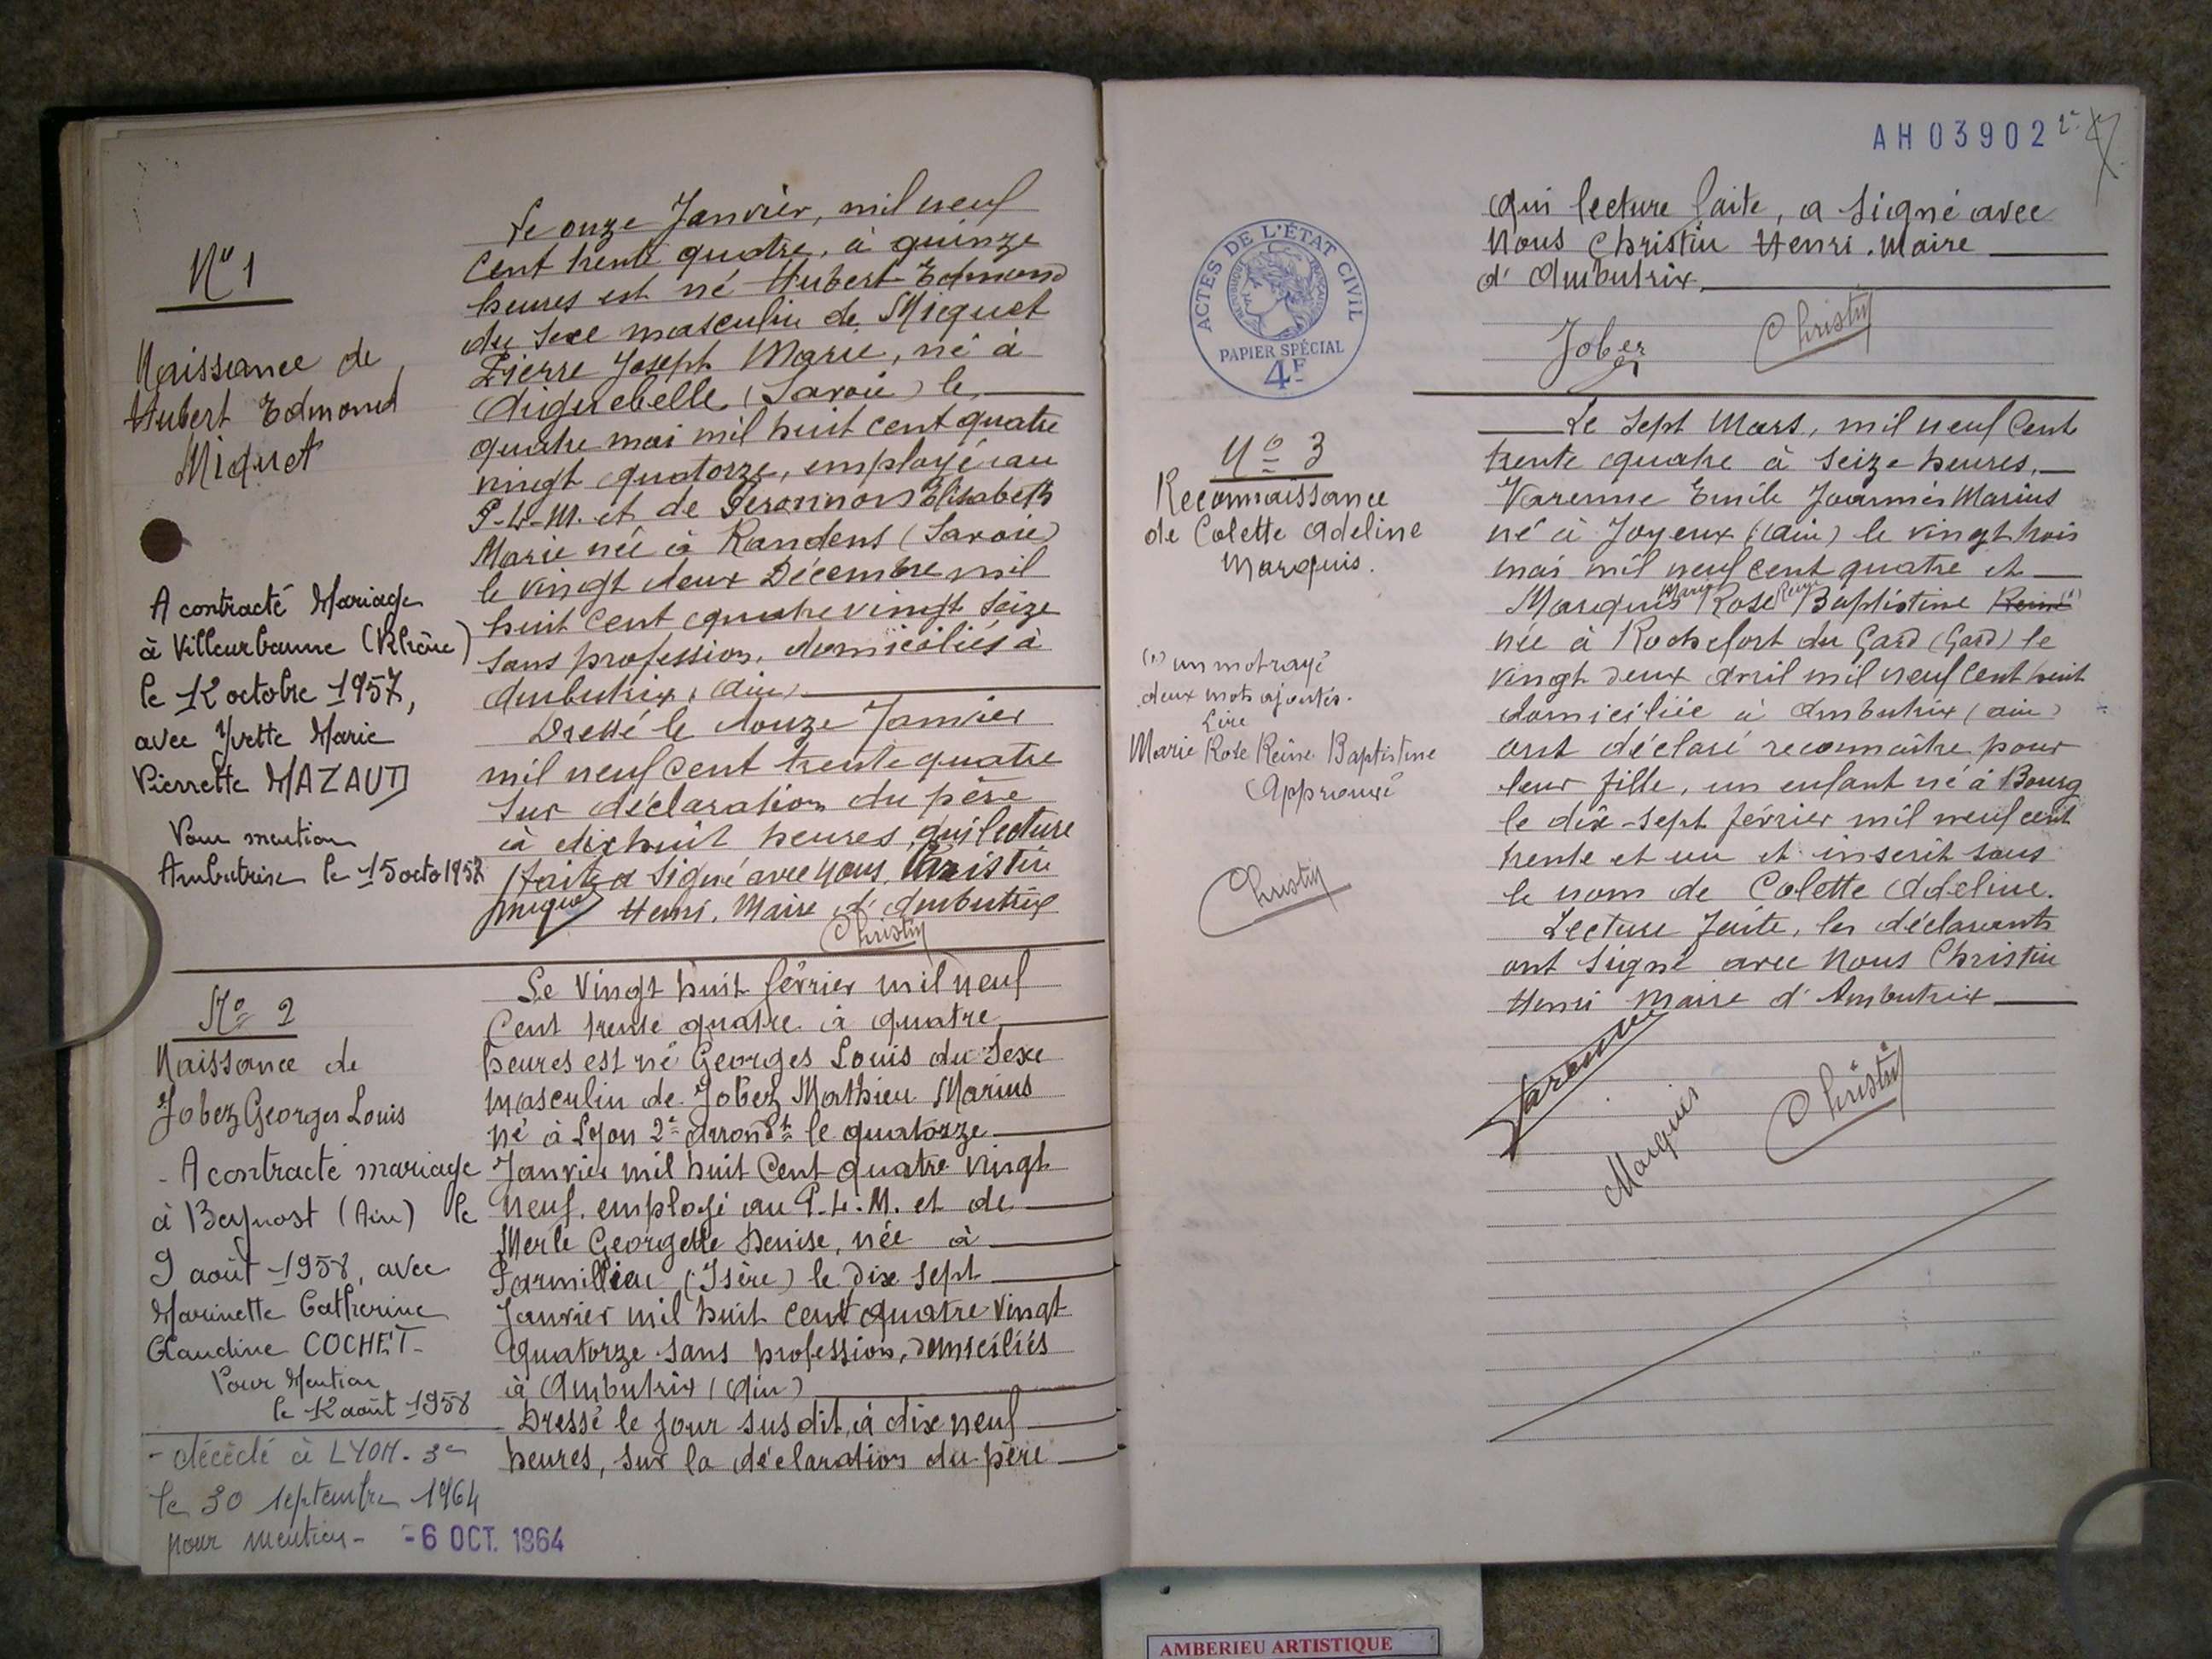 N° 1
Naissance de
Hubert Edmond
Miquet
A contracté Mariage
à Villeurbanne (Rhône)
le 12 octobre 1957,
avec Yvette Marie
Pierrette MAZAUD
Pour mention
Ambutrix le 15 octo 1957
Le onze Janvier, mil neuf
cent trente quatre, à quinze
heures est né Hubert Edmond
du sexe masculin de Miquet
Pierre Joseph Marie, né à
Aiguebelle (Savoie) le
quatre mai mil huit cent quatre
vingt quatorze, employé au
P-L-M. et de Elisabeth
Marie née à Randens (Savoie)
le vingt deux Décembre mil
huit cent quatre vingt seize
sans profession, domiciliés à
Ambutrix (Ain)
Dressé le douze Janvier
mil neuf cent trente quatre
sur déclaration du père
à dix huit heures, qui lecture
faite a signé avec nous, Christin
Miquet Henri, Maire d'Ambutrix
Christin
N° 2
Naissance de
Jobez Georges Louis
- A contracté mariage
à Beynost (Ain) le
9 août 1958, avec
Marinette Catherine
Claudine COCHET-
Pour Mention
le 12 août 1958
- décédé à LYON. 3e
le 30 septembre 1964
pour mention - -6 OCT. 1964
Le Vingt huit février mil neuf
Cent trente quatre à quatre
heures est né Georges Louis du Sexe
masculin de Jobez Mathieu Marius
né à Lyon 2e arrondt le quatorze
Janvier mil huit Cent quatre vingt
neuf, employé au P.L.M. et de
Merle Georgette Denise, née à
Parmilieu (Isère) le dix sept
Janvier mil huit cent quatre vingt
quatorze sans profession, domiciliés
à Ambutrix (Ain)
Dressé le jour susdit, à dix neuf
heures, sur la déclaration du père
AH03902
qui lecture faite, a signé avec
Nous Christin Henri. Maire
d'Ambutrix.
Jobez Christin
ACTES DE L'ÉTAT CIVIL
RÉPUBLIQUE FRANÇAISE
PAPIER SPÉCIAL
4F
N° 3
Reconnaissance
de Colette Adeline
Marquis.
(1) un mot rayé
deux mots ajoutés.
Lire
Marie Rose Reine Baptistine
Approuvé
Christin
Le Sept Mars, mil neuf Cent
trente quatre à seize heures,
Varenne Emile Joannès Marius
né à Joyeux (Ain) le vingt trois
mai mil neuf cent quatre et
Marquis Marie Rose Reine Baptistine Reine (1)
née à Rochefort du Gard (Gard) le
vingt deux avril mil neuf cent huit
domiciliée à Ambutrix (Ain)
ont déclaré reconnaître pour
leur fille, un enfant né à Bourg
le dix-sept février mil neuf cent
trente et un et inscrit sous
le nom de Colette Adeline.
Lecture faite, les déclarants
ont signé avec Nous Christin
Henri Maire d'Ambutrix
Varenne
Marquis
Christin
AMBERIEU ARTISTIQUE